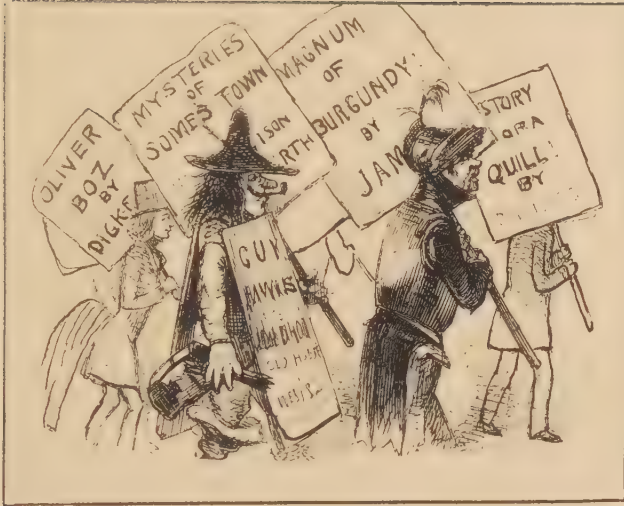 OLIVER
BOZ
BY
DIGKE
MYSTERIES
OF
SOMES TOWN
ISON
RTH
MAGNUM
OF
BURGUNDY!
BY
JAM
STORY
OF A
QUILL
BY
GUY